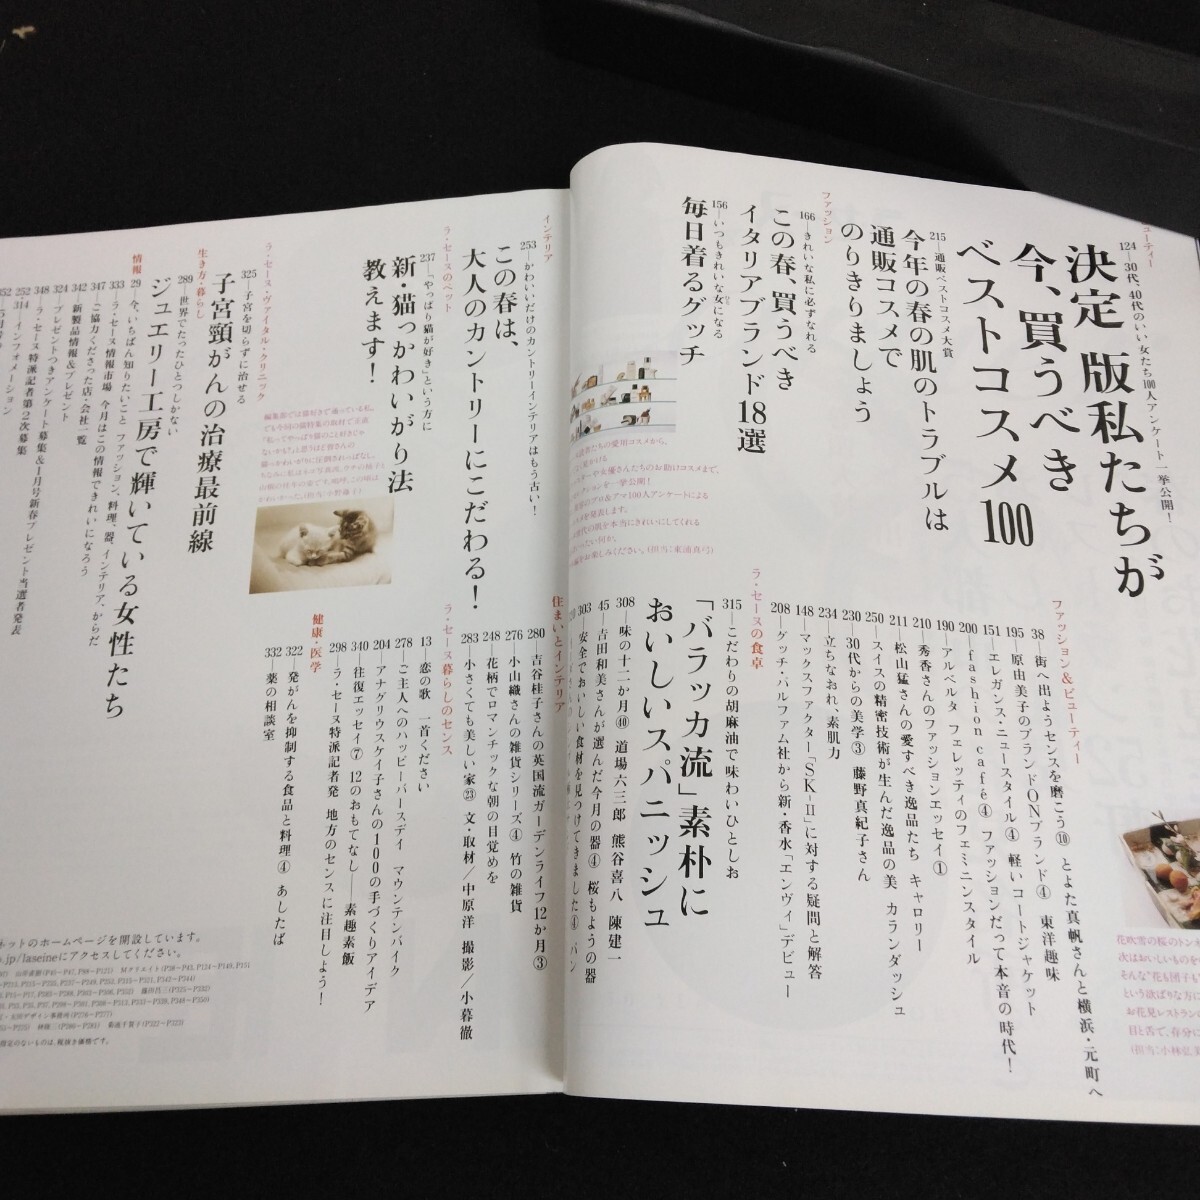 ューティー
124―30代、40代のいい女たち100人アンケート一挙公開！
決定版私たちが
今、買うべき
ベストコスメ100
215―通販ベストコスメ大賞
今年の春の肌のトラブルは
通販コスメで
のりきりましょう
ファッション
166―きれいな私に必ずなれる
この春、買うべき
イタリアブランド18選
156―いつもきれいな女になる
毎日着るグッチ
ファッション&ビューティー
38―街へ出ようセンスを磨こう⑩ とよた真帆さんと横浜・元町へ
195―原由美子のブランドONブランド④ 東洋趣味
151―エレガンス・ニュースタイル④ 軽いコートジャケット
200―fashion café④ ファッションだって本音の時代！
190―アルベルタ フェレッティのフェミニンスタイル
210―秀香さんのファッションエッセイ①
211―松山猛さんの愛すべき逸品たち キャロリー
250―スイスの精密技術が生んだ逸品の美 カランダッシュ
230―30代からの美学③ 藤野真紀子さん
234―立ちなおれ、素肌力
148―マックスファクター「SK-Ⅱ」に対する疑問と解答
208―グッチ・パルファム社から新・香水「エンヴィ」デビュー
ラ・セーヌの食卓
315―こだわりの胡麻油で味わいひとしお
「バラッカ流」素朴に
おいしいスパニッシュ
308―味の十二か月㊵ 道場六三郎 熊谷喜八 陳建一
45―吉田和美さんが選んだ今月の器④ 桜もようの器
303―安全でおいしい食材を見つけてきました④ パン
花吹雪の桜のトンネ
次はおいしいものを
そんな"花も団子も
という欲ばりな方に
お花見レストランの
目と舌で、存分に
(担当:小林弘美
インテリア
253―かわいいだけのカントリーインテリアはもう古い！
この春は、
大人のカントリーにこだわる！
ラ・セーヌのペット
237―「やっぱり猫が好き」という方に
新・猫っかわいがり法
教えます！
ラ・セーヌ・ヴァイタル・クリニック
325―子宮を切らずに治せる
子宮頸がんの治療最前線
生き方・暮らし
289―世界でたったひとつしかない
ジュエリー工房で輝いている女性たち
情報
29―今、いちばん知りたいこと ファッション、料理、器、インテリア、からだ
333―ラ・セーヌ情報市場 今月はこの情報できれいになろう
347―ご協力くださった店・会社一覧
342―新製品情報&プレゼント
324―プレゼントつきアンケート募集&1月号新春プレゼント当選者発表
348―ラ・セーヌ特派記者第2次募集
314―インフォメーション
住まいとインテリア
280―吉谷桂子さんの英国流ガーデンライフ12か月③
276―小山織さんの雑貨シリーズ④ 竹の雑貨
248―花柄でロマンチックな朝の目覚めを
283―小さくても美しい家㉓ 文・取材/中原洋 撮影/小暮徹
ラ・セーヌ暮らしのセンス
13―恋の歌 一首ください
278―ご主人へのハッピーバースデイ マウンテンバイク
204―アナグリウスケイ子さんの100の手づくりアイデア
340―往復エッセイ⑦ 12のおもてなし―素趣素飯
298―ラ・セーヌ特派記者発 地方のセンスに注目しよう！
健康・医学
322―発がんを抑制する食品と料理④ あしたば
332―薬の相談室
ネットのホームページを開設しています。
p.jp/laseineにアクセスしてください。